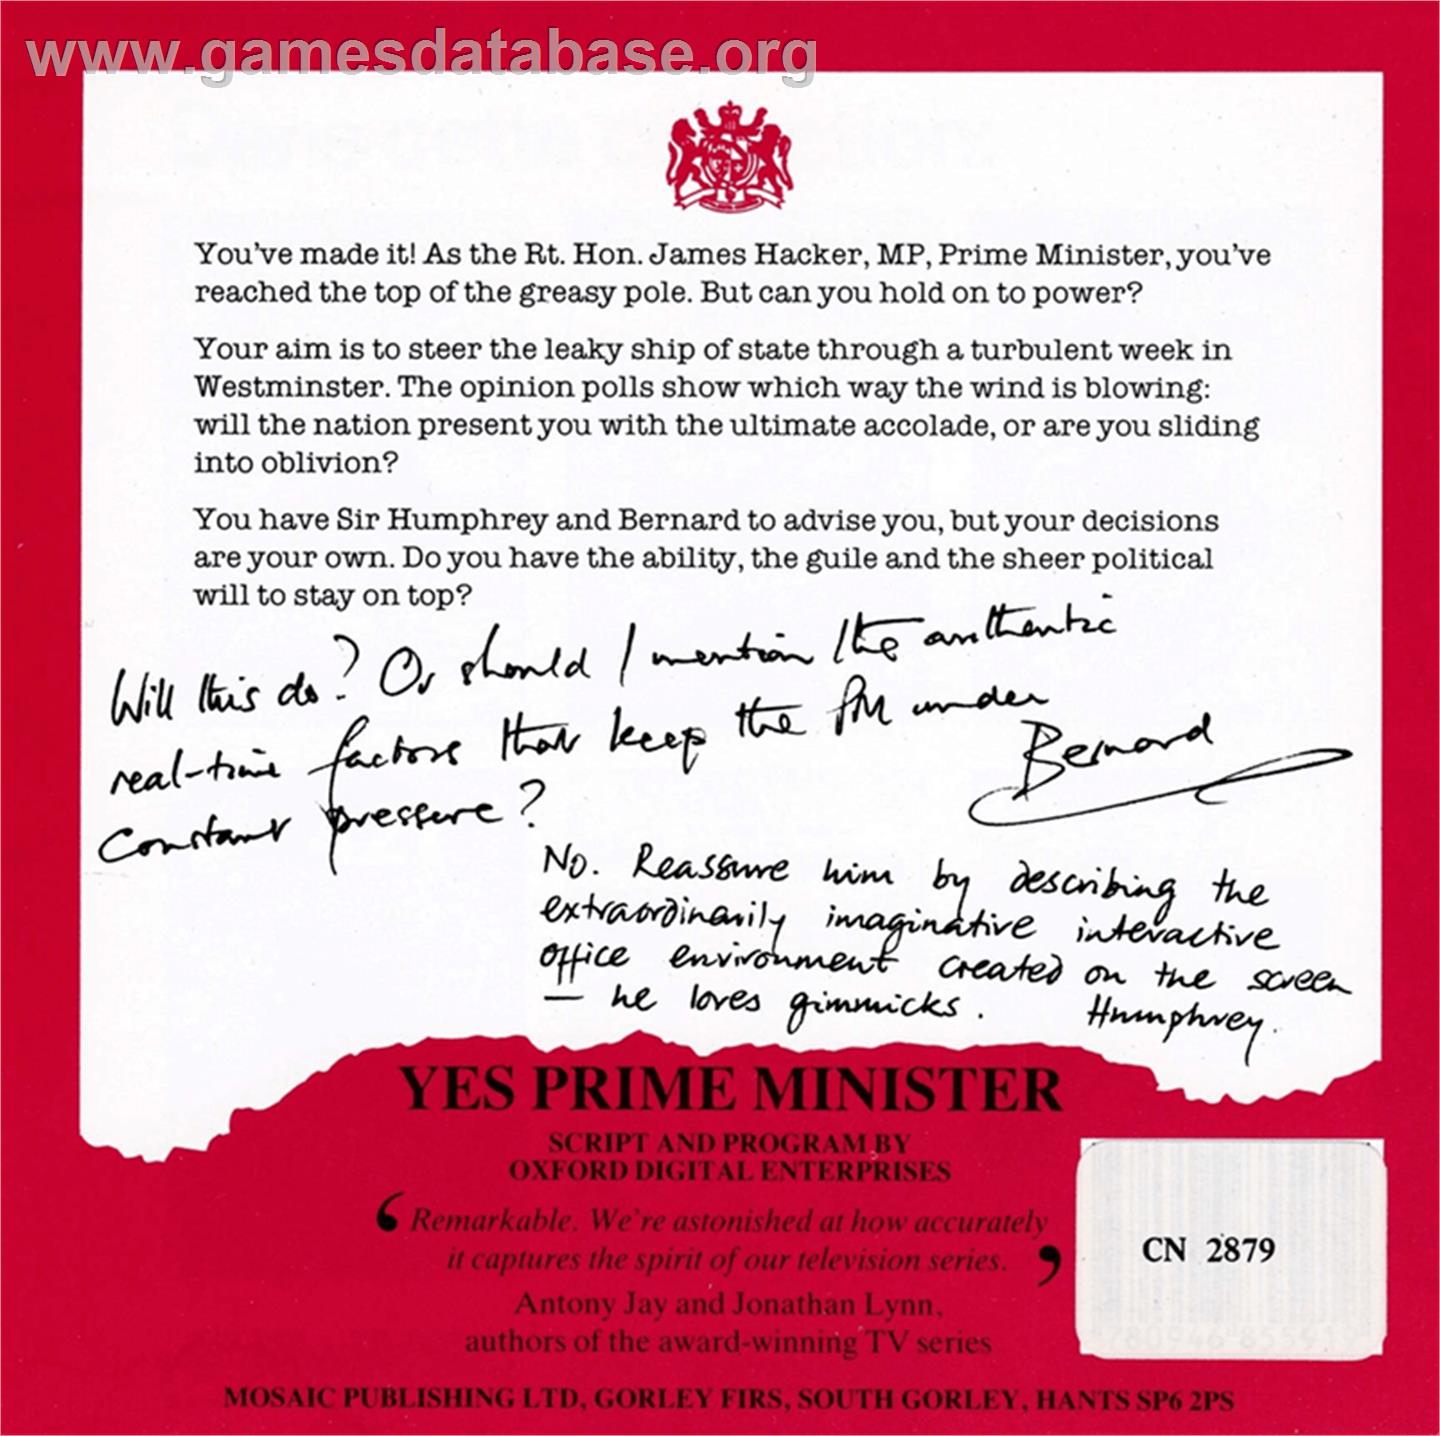 www.gamesdatabase.org
You've made it! As the Rt. Hon. James Hacker, MP, Prime Minister, you've
reached the top of the greasy pole. But can you hold on to power?
Your aim is to steer the leaky ship of state through a turbulent week in
Westminster. The opinion polls show which way the wind is blowing:
will the nation present you with the ultimate accolade, or are you sliding
into oblivion?
You have Sir Humphrey and Bernard to advise you, but your decisions
are your own. Do you have the ability, the guile and the sheer political
will to stay on top?
Will this do? Or should I mention the authentic
real-time factors that keep the PM under
constant pressure?
Bernard
No. Reassure him by describing the
extraordinarily imaginative interactive
office environment created on the screen
— he loves gimmicks. Humphrey.
YES PRIME MINISTER
SCRIPT AND PROGRAM BY
OXFORD DIGITAL ENTERPRISES
‘Remarkable. We're astonished at how accurately
it captures the spirit of our television series.’
Antony Jay and Jonathan Lynn,
authors of the award-winning TV series
CN 2879
MOSAIC PUBLISHING LTD, GORLEY FIRS, SOUTH GORLEY, HANTS SP6 2PS